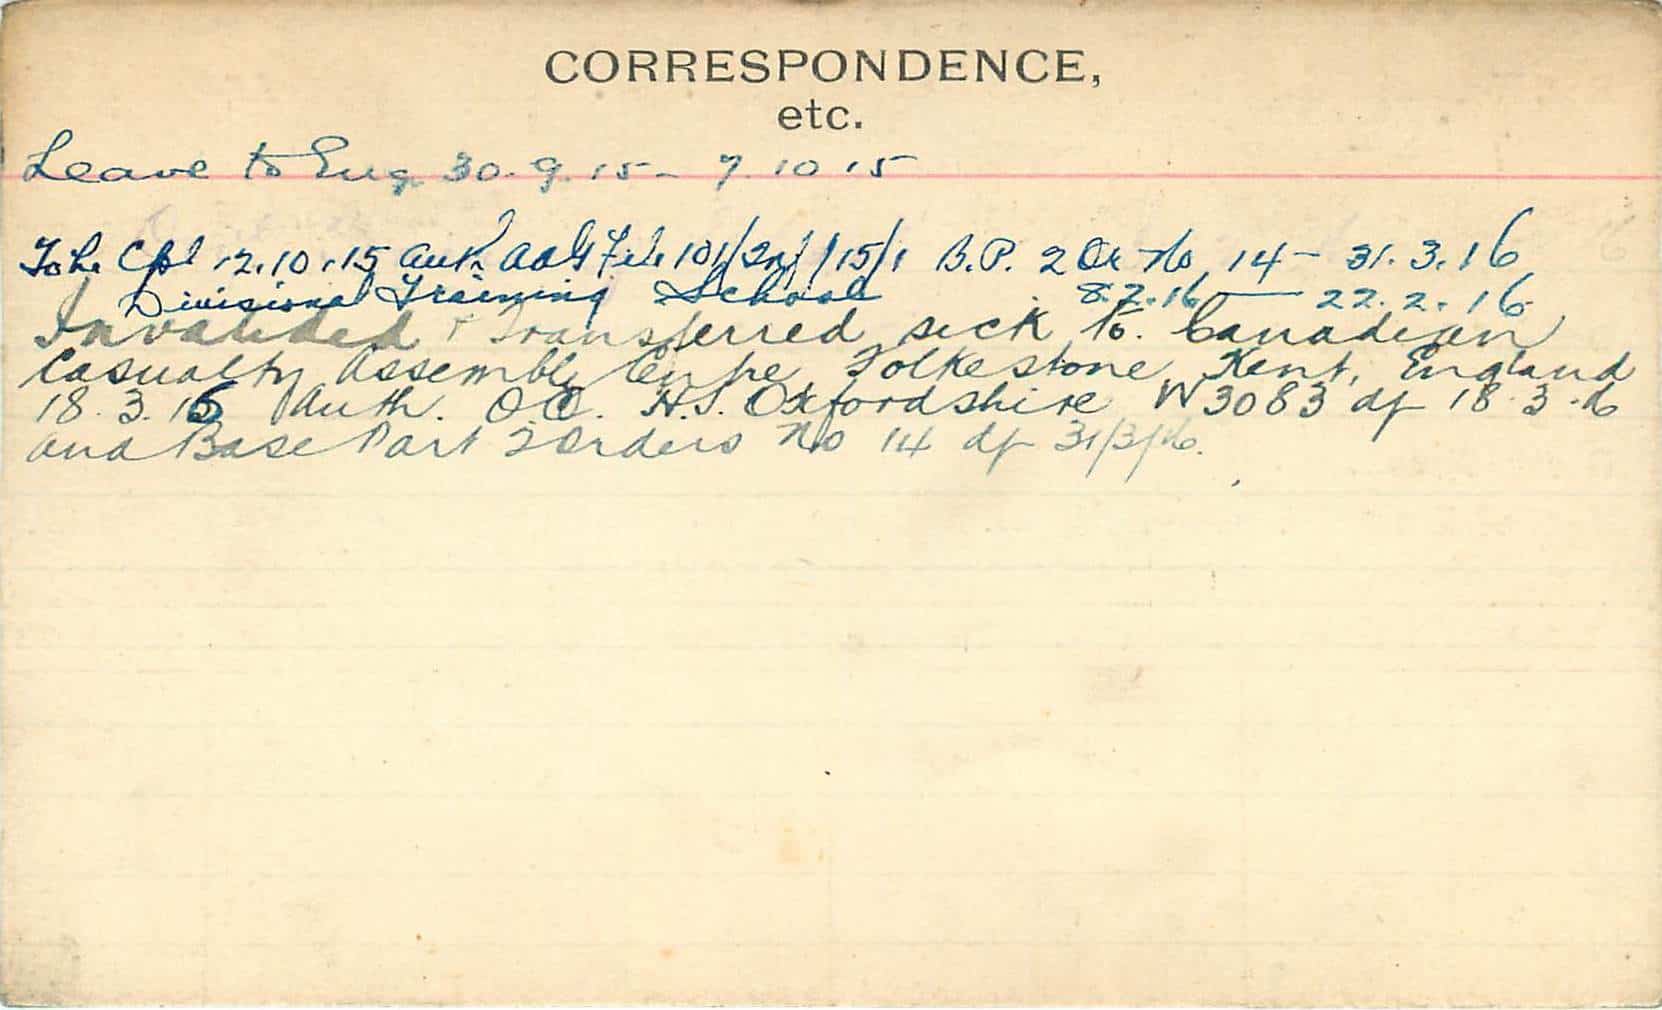 CORRESPONDENCE,
etc.
Leave to Eng 30.9.15 - 7.10.15
To be Cpl 12.10.15 Auth AAG File 101/ /15/1 B.P. 2 Or No 14 - 31.3.16
Divisional Training School 8.2.16 — 22.2.16
Invalided & Transferred sick to. Canadian
Casualty Assembly Centre Folkestone Kent, England
18.3.16 Auth. O.C. H.S. Oxfordshire W3083 df 18.3.16
and Base Part 2 Orders No 14 df 31/3/16.